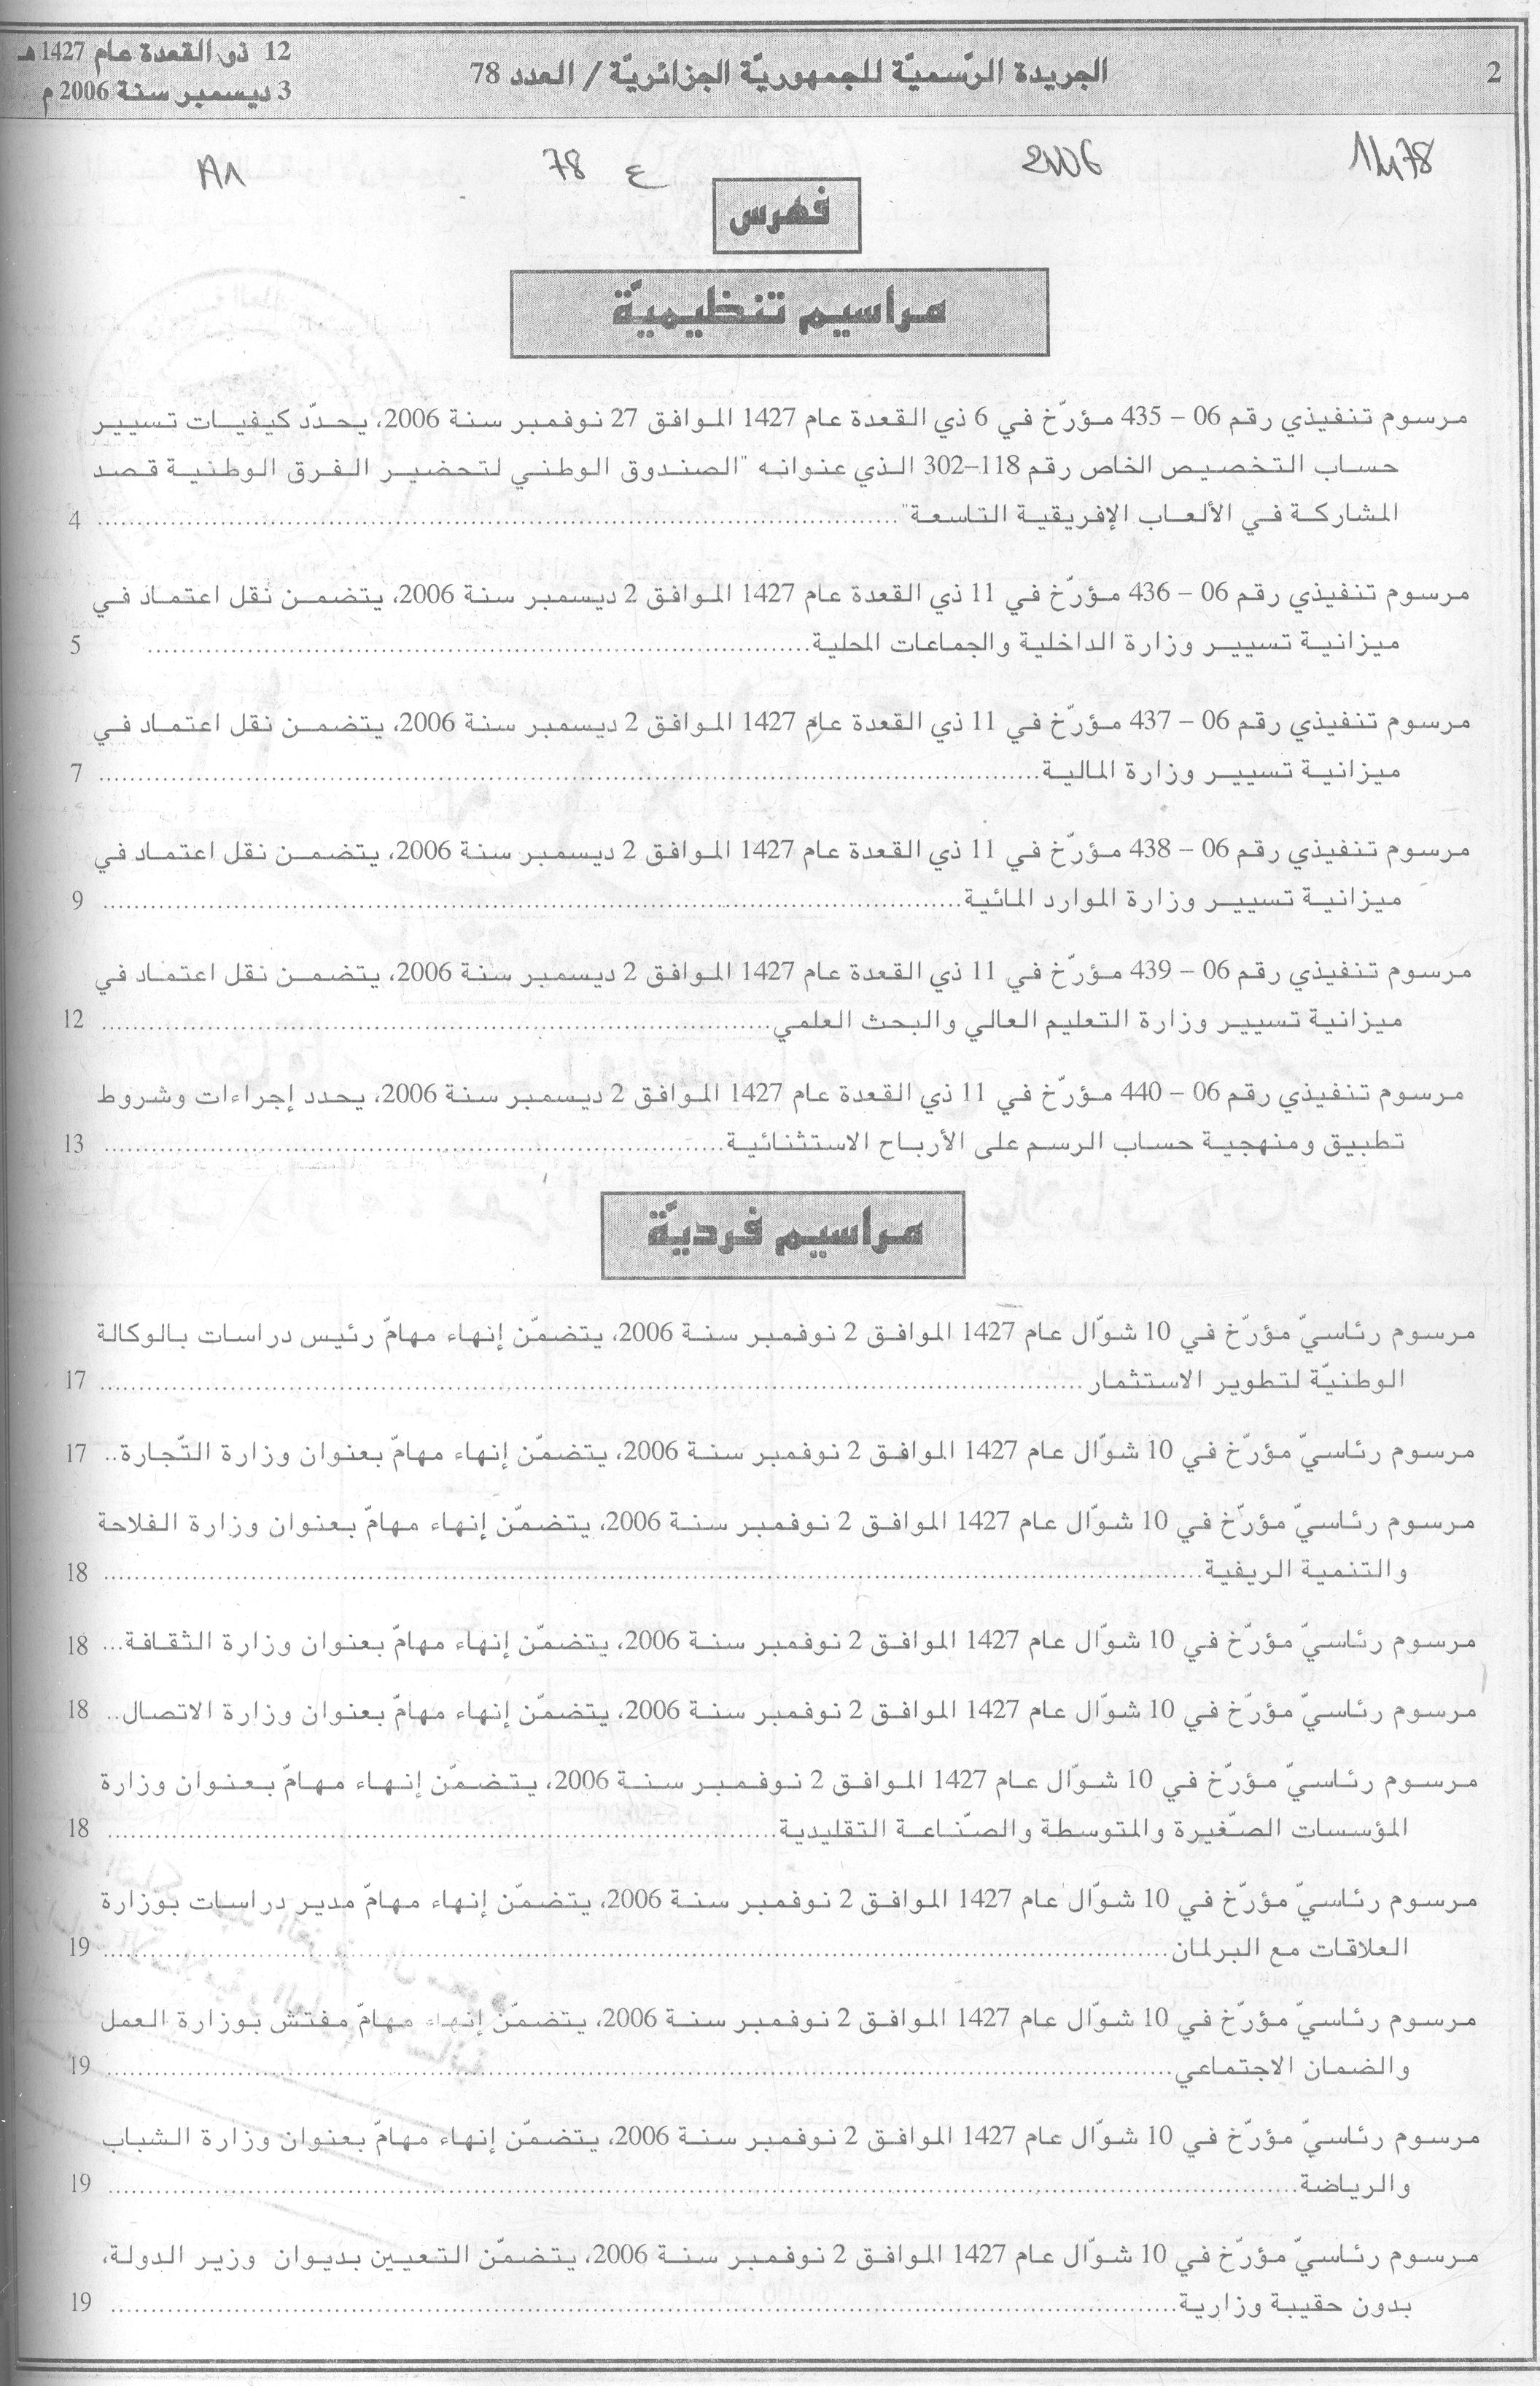 2
الجريدة الرّسميّة للجمهوريّة الجزائريّة / العدد 78
12 ذو القعدة عام 1427 هـ
3 ديسمبر سنة 2006 م
2006
ع 78
فهرس
مراسيم تنظيميّة
مرسوم تنفيذي رقم 06 – 435 مؤرّخ في 6 ذي القعدة عام 1427 الموافق 27 نوفمبر سنة 2006، يحدّد كيفيات تسيير
حساب التخصيص الخاص رقم 118–302 الذي عنوانه "الصندوق الوطني لتحضير الفرق الوطنية قصد
المشاركة في الألعاب الإفريقية التاسعة".................... 4
مرسوم تنفيذي رقم 06 – 436 مؤرّخ في 11 ذي القعدة عام 1427 الموافق 2 ديسمبر سنة 2006، يتضمن نقل اعتماد في
ميزانية تسيير وزارة الداخلية والجماعات المحلية.................... 5
مرسوم تنفيذي رقم 06 – 437 مؤرّخ في 11 ذي القعدة عام 1427 الموافق 2 ديسمبر سنة 2006، يتضمن نقل اعتماد في
ميزانية تسيير وزارة المالية.................... 7
مرسوم تنفيذي رقم 06 – 438 مؤرّخ في 11 ذي القعدة عام 1427 الموافق 2 ديسمبر سنة 2006، يتضمن نقل اعتماد في
ميزانية تسيير وزارة الموارد المائية.................... 9
مرسوم تنفيذي رقم 06 – 439 مؤرّخ في 11 ذي القعدة عام 1427 الموافق 2 ديسمبر سنة 2006، يتضمن نقل اعتماد في
ميزانية تسيير وزارة التعليم العالي والبحث العلمي.................... 12
مرسوم تنفيذي رقم 06 – 440 مؤرّخ في 11 ذي القعدة عام 1427 الموافق 2 ديسمبر سنة 2006، يحدد إجراءات وشروط
تطبيق ومنهجية حساب الرسم على الأرباح الاستثنائية.................... 13
مراسيم فرديّة
مرسوم رئاسيّ مؤرّخ في 10 شوّال عام 1427 الموافق 2 نوفمبر سنة 2006، يتضمّن إنهاء مهامّ رئيس دراسات بالوكالة
الوطنيّة لتطوير الاستثمار.................... 17
مرسوم رئاسيّ مؤرّخ في 10 شوّال عام 1427 الموافق 2 نوفمبر سنة 2006، يتضمّن إنهاء مهامّ بعنوان وزارة التّجارة.. 17
مرسوم رئاسيّ مؤرّخ في 10 شوّال عام 1427 الموافق 2 نوفمبر سنة 2006، يتضمّن إنهاء مهامّ بعنوان وزارة الفلاحة
والتنمية الريفية.................... 18
مرسوم رئاسيّ مؤرّخ في 10 شوّال عام 1427 الموافق 2 نوفمبر سنة 2006، يتضمّن إنهاء مهامّ بعنوان وزارة الثقافة... 18
مرسوم رئاسيّ مؤرّخ في 10 شوّال عام 1427 الموافق 2 نوفمبر سنة 2006، يتضمّن إنهاء مهامّ بعنوان وزارة الاتصال.. 18
مرسوم رئاسيّ مؤرّخ في 10 شوّال عام 1427 الموافق 2 نوفمبر سنة 2006، يتضمّن إنهاء مهامّ بعنوان وزارة
المؤسسات الصّغيرة والمتوسطة والصّناعة التقليدية.................... 18
مرسوم رئاسيّ مؤرّخ في 10 شوّال عام 1427 الموافق 2 نوفمبر سنة 2006، يتضمّن إنهاء مهامّ مدير دراسات بوزارة
العلاقات مع البرلمان.................... 19
مرسوم رئاسيّ مؤرّخ في 10 شوّال عام 1427 الموافق 2 نوفمبر سنة 2006، يتضمّن إنهاء مهامّ مفتش بوزارة العمل
والضمان الاجتماعي.................... 19
مرسوم رئاسيّ مؤرّخ في 10 شوّال عام 1427 الموافق 2 نوفمبر سنة 2006، يتضمّن إنهاء مهامّ بعنوان وزارة الشباب
والرياضة.................... 19
مرسوم رئاسيّ مؤرّخ في 10 شوّال عام 1427 الموافق 2 نوفمبر سنة 2006، يتضمّن التعيين بديوان وزير الدولة،
بدون حقيبة وزارية.................... 19